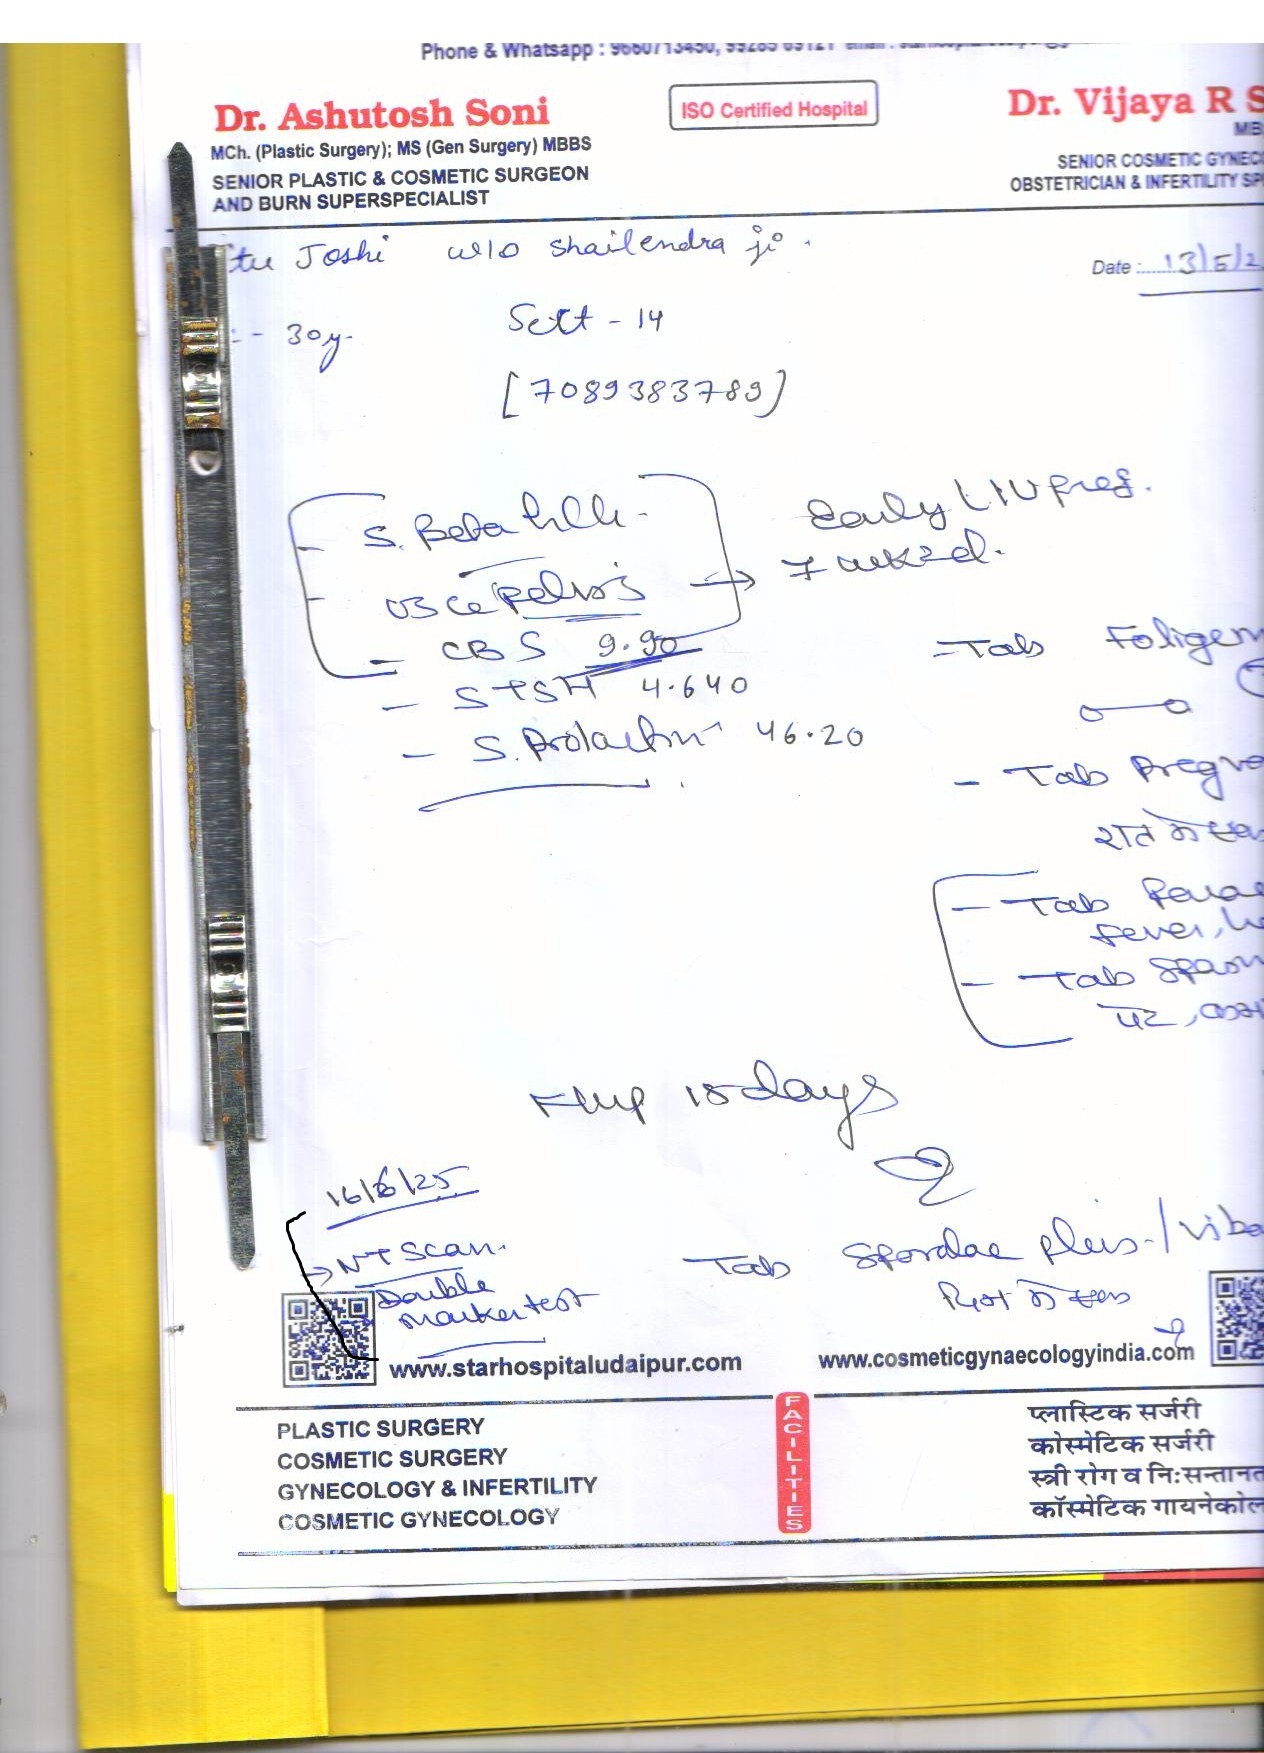 Phone & Whatsapp :
Dr. Ashutosh Soni
MCh. (Plastic Surgery); MS (Gen Surgery) MBBS
SENIOR PLASTIC & COSMETIC SURGEON
AND BURN SUPERSPECIALIST
ISO Certified Hospital
Dr. Vijaya R S
MB
SENIOR COSMETIC GYNEC
OBSTETRICIAN & INFERTILITY SP
tu Joshi w/o Shailendra ji.
Date : 13/5/2
:- 30y.
Sect - 14
[7089383789]
- S. Beta
Early preg.
Pelvis → 7
- CBS 9.90
- S TSH 4.640
- S. Prolactin 46.20
- Tab Foligem
- Tab Pregve
रात में
- Tab Parac
fever,
- Tab Spasm
पेट,
15 days
16/6/25
→ NT Scan.
Double
marker test
Tab plus
दिन में एक
www.starhospitaludaipur.com
www.cosmeticgynaecologyindia.com
PLASTIC SURGERY
COSMETIC SURGERY
GYNECOLOGY & INFERTILITY
COSMETIC GYNECOLOGY
FACILITIES
प्लास्टिक सर्जरी
कोस्मेटिक सर्जरी
स्त्री रोग व निःसन्तानत
कॉस्मेटिक गायनेकोल